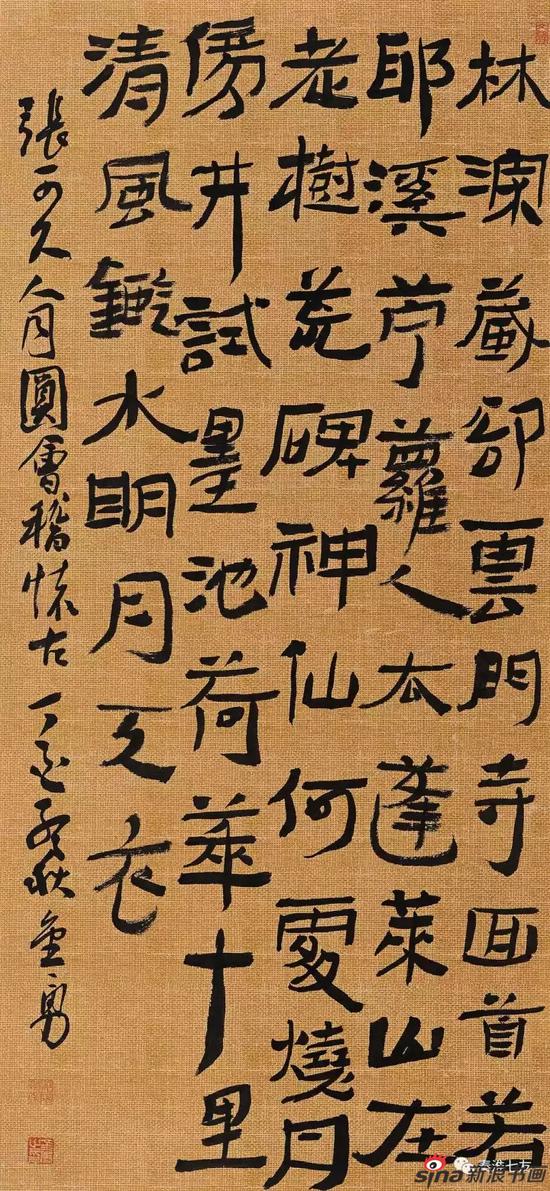 林深藏却雲門寺回首若
耶溪苧蘿人去蓬萊山在
老樹荒碑神仙何處燒丹
傍井試墨池荷華十里
清風鑑水明月天衣
張可久人月圓會稽懷古 丁酉 秋
秦淮七方
sina新浪书画